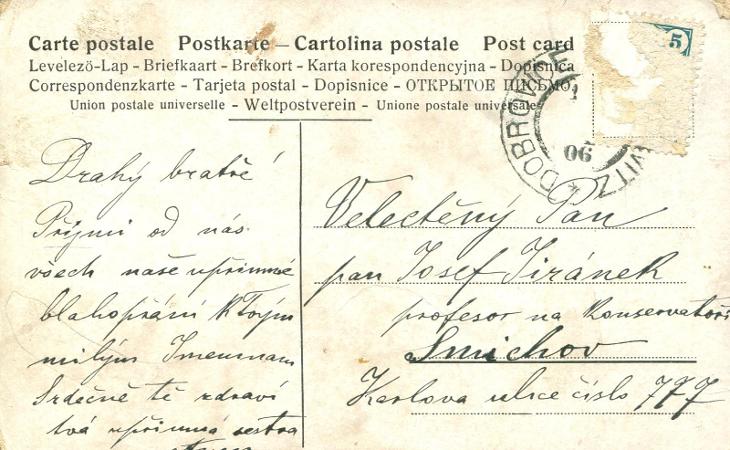 Carte postale Postkarte – Cartolina postale Post card
Levelezö-Lap - Briefkaart - Brefkort - Karta korespondencyjna - Dopisnica
Correspondenzkarte - Tarjeta postal - Dopisnice - ОТКРЫТОЕ ПИСЬМО
Union postale universelle – Weltpostverein – Unione postale universale
5
DOBROVICE
06
Drahý bratře
Přijmi od nás
všech naše upřímné
blahopřání k Tvým
milým Jmeninam
Srdečně tě zdraví
tvá upřímná sestra
Velectěný Pan
pan Josef Jiránek
profesor na Konservatoři
Smichov
Karlova ulice číslo 777